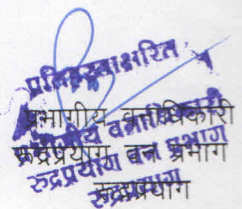 प्रतिहस्ताक्षरित
प्रभागीय वनाधिकारी
रूद्रप्रयाग वन प्रभाग
रूद्रप्रयाग
प्रभागीय वनाधिकारी
रुद्रप्रयाग वन प्रभाग
रूद्रप्रयाग